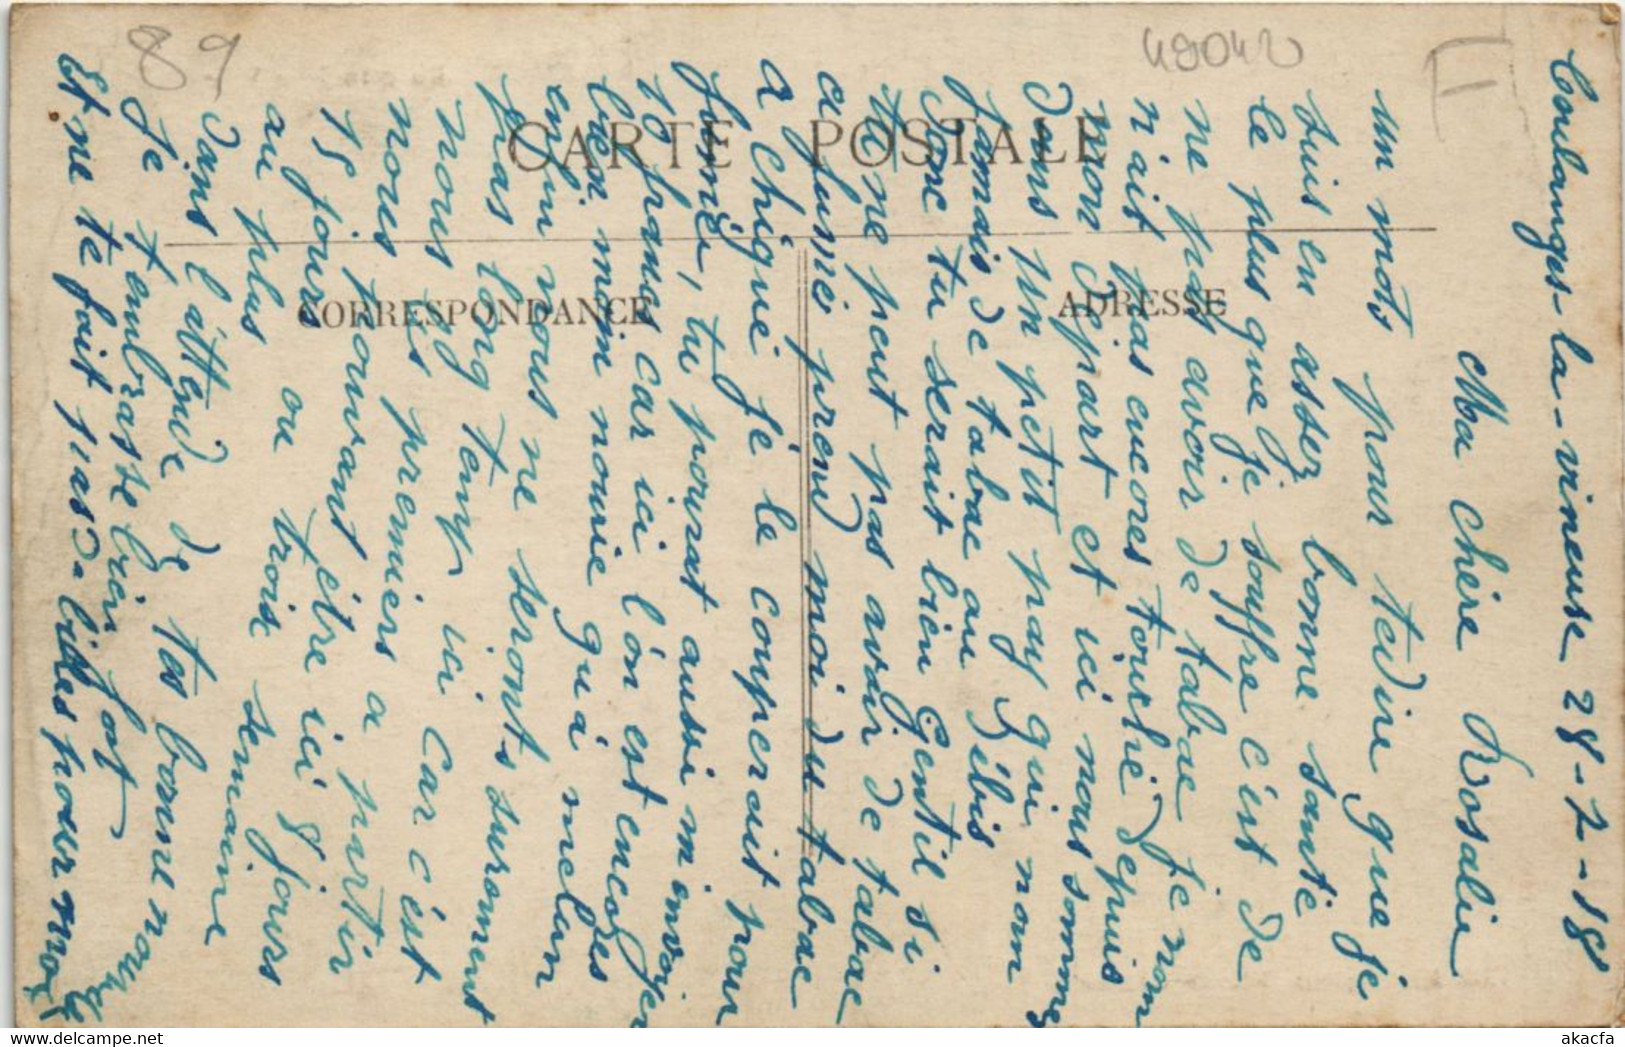 89
49042
F
CARTE POSTALE
CORRESPONDANCE
ADRESSE
Coulanges-la-vineuse 28-2-18
Ma chère Rosalie
un mots pour tedire que je
suis en assez bonne santé
le plus que je souffre c'est de
ne pas avoir de tabac je nom
n'ait pas encores touché depuis
mon départ et ici nous somme
dans un petit pay qui nom
jamais de tabac au débis
donc tu serait bien Gentil si
tu ne peut pas avoir de tabac
a fumés prend moi du tabac
a chiqué je le couperait pour
fumé, tu pourrat aussi m'envoyer
10 francs car ici l'on est encore
bien moin nourie qu'a melun
enfin nous ne seronts surement
pas long temp ici car c'est
nous les premiers a partir
nous pouvant être ici 8 jours
15 jours ou trois semaine
au plus
dans l'attende de tes bonne nouvel
je t'embrasse bien fort
Et ne te fait pas de biles pour moi
akacfa